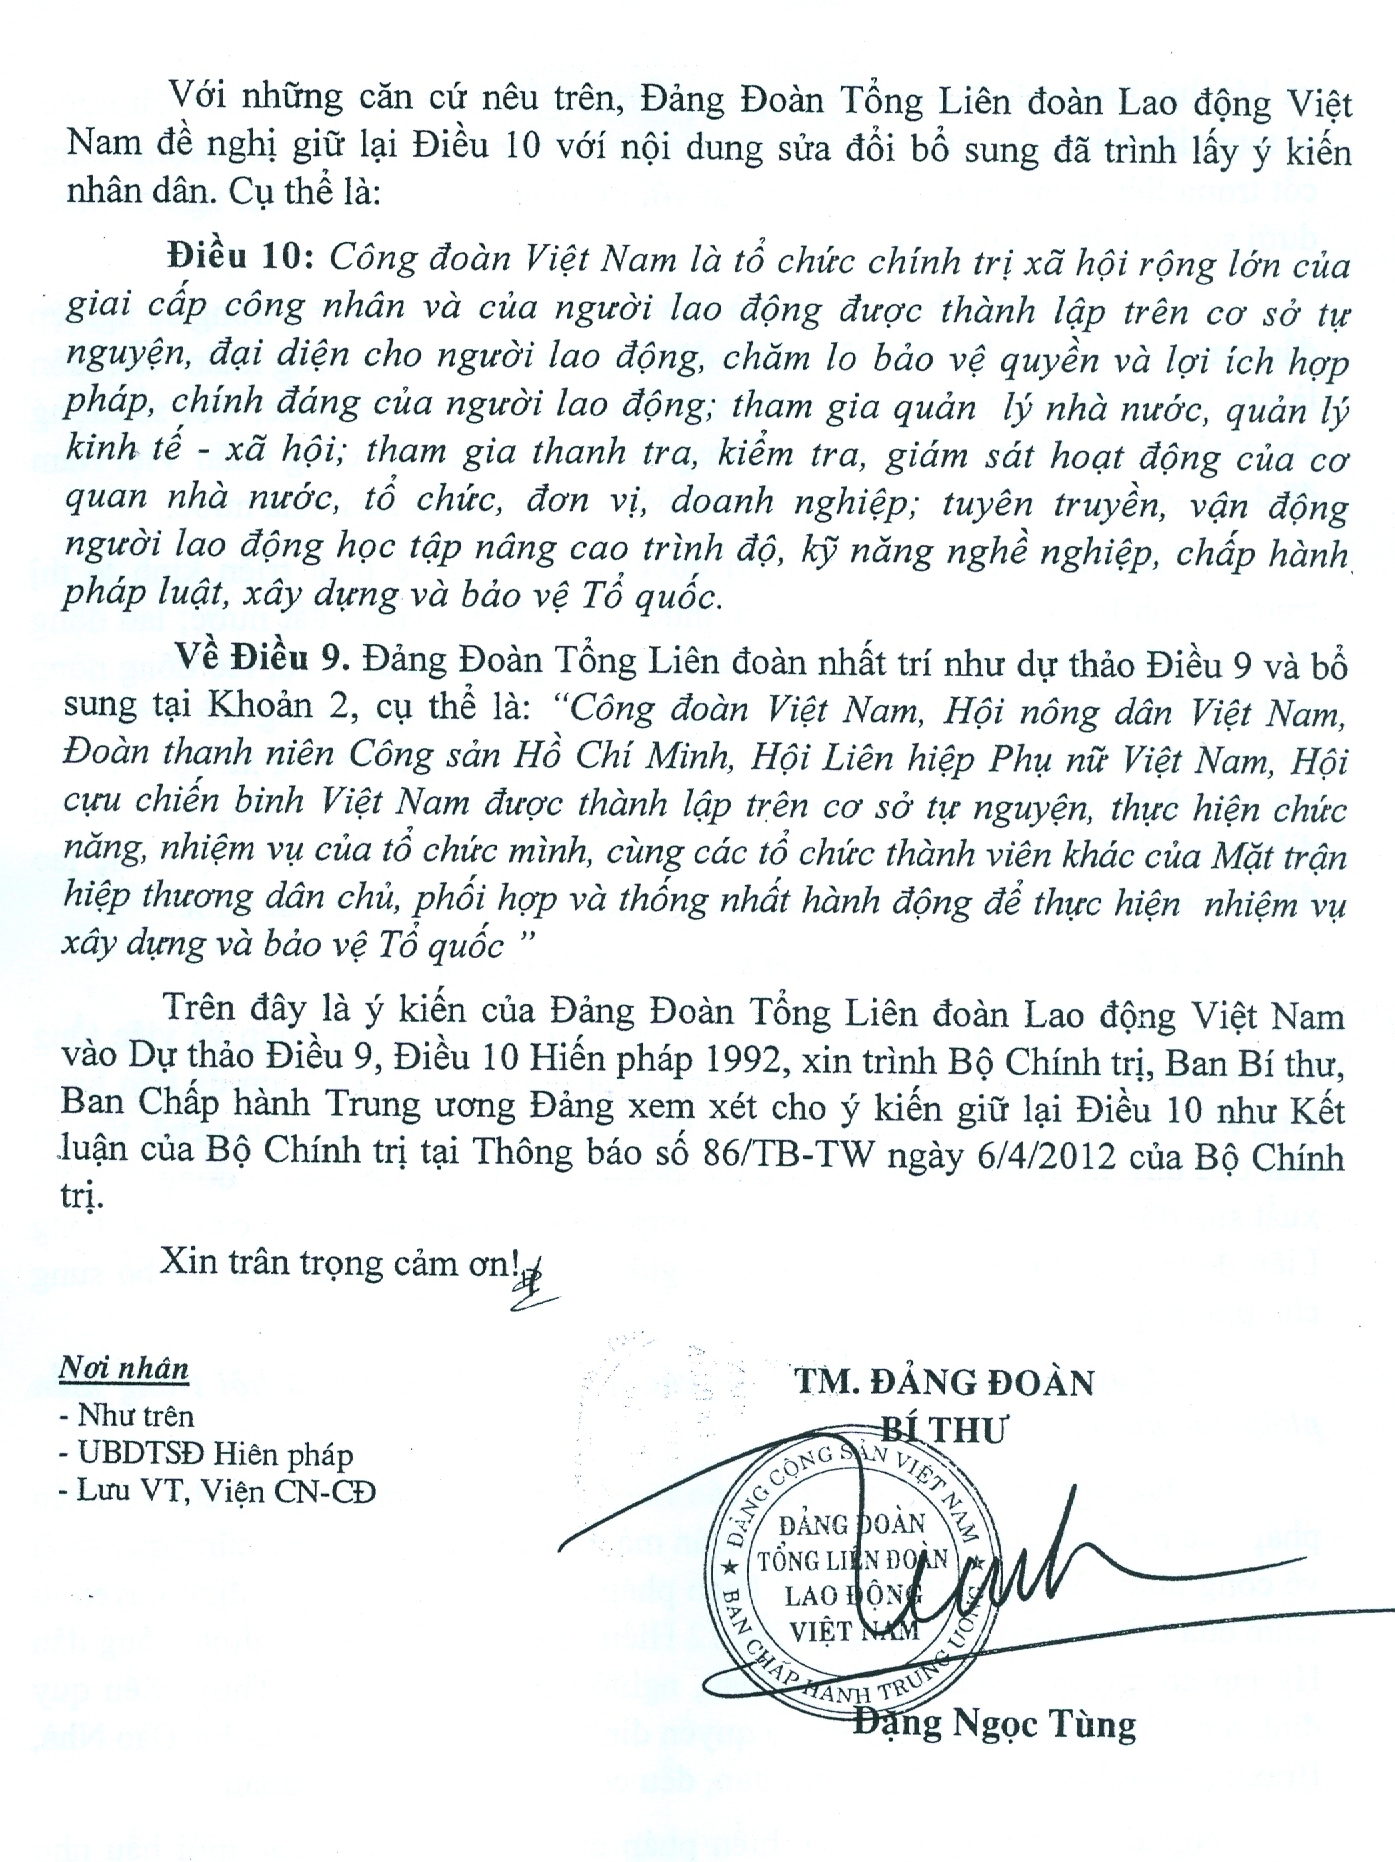 Với những căn cứ nêu trên, Đảng Đoàn Tổng Liên đoàn Lao động Việt
Nam đề nghị giữ lại Điều 10 với nội dung sửa đổi bổ sung đã trình lấy ý kiến
nhân dân. Cụ thể là:
Điều 10: Công đoàn Việt Nam là tổ chức chính trị xã hội rộng lớn của
giai cấp công nhân và của người lao động được thành lập trên cơ sở tự
nguyện, đại diện cho người lao động, chăm lo bảo vệ quyền và lợi ích hợp
pháp, chính đáng của người lao động; tham gia quản lý nhà nước, quản lý
kinh tế - xã hội; tham gia thanh tra, kiểm tra, giám sát hoạt động của cơ
quan nhà nước, tổ chức, đơn vị, doanh nghiệp; tuyên truyền, vận động
người lao động học tập nâng cao trình độ, kỹ năng nghề nghiệp, chấp hành
pháp luật, xây dựng và bảo vệ Tổ quốc.
Về Điều 9. Đảng Đoàn Tổng Liên đoàn nhất trí như dự thảo Điều 9 và bổ
sung tại Khoản 2, cụ thể là: “Công đoàn Việt Nam, Hội nông dân Việt Nam,
Đoàn thanh niên Công sản Hồ Chí Minh, Hội Liên hiệp Phụ nữ Việt Nam, Hội
cựu chiến binh Việt Nam được thành lập trên cơ sở tự nguyện, thực hiện chức
năng, nhiệm vụ của tổ chức mình, cùng các tổ chức thành viên khác của Mặt trận
hiệp thương dân chủ, phối hợp và thống nhất hành động để thực hiện nhiệm vụ
xây dựng và bảo vệ Tổ quốc ”
Trên đây là ý kiến của Đảng Đoàn Tổng Liên đoàn Lao động Việt Nam
vào Dự thảo Điều 9, Điều 10 Hiến pháp 1992, xin trình Bộ Chính trị, Ban Bí thư,
Ban Chấp hành Trung ương Đảng xem xét cho ý kiến giữ lại Điều 10 như Kết
luận của Bộ Chính trị tại Thông báo số 86/TB-TW ngày 6/4/2012 của Bộ Chính
trị.
Xin trân trọng cảm ơn!
Nơi nhân
- Như trên
- UBDTSĐ Hiên pháp
- Lưu VT, Viện CN-CĐ
TM. ĐẢNG ĐOÀN
BÍ THƯ
ĐẢNG CỘNG SẢN VIỆT NAM
ĐẢNG ĐOÀN
TỔNG LIÊN ĐOÀN
LAO ĐỘNG
VIỆT NAM
BAN CHẤP HÀNH TRUNG ƯƠNG
Đặng Ngọc Tùng